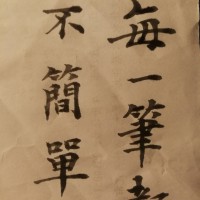 每一筆都
不簡單